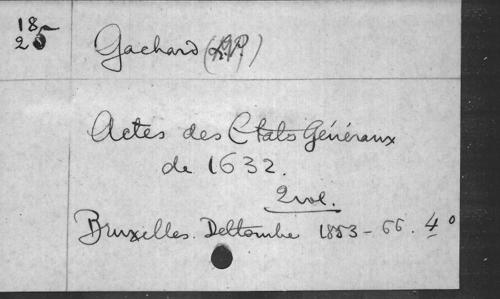 18
25
Gachard (L.P.)
Actes des Etats Généraux
de 1632.
2 vol.
Bruxelles. Deltombe 1853-66. 4°